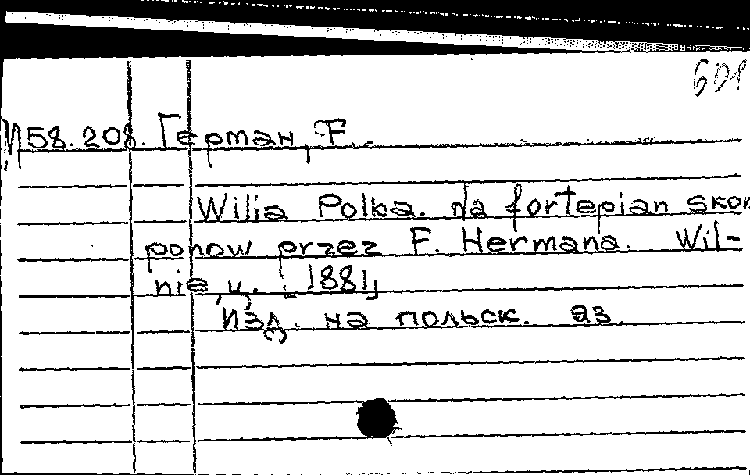 И58.208. Герман, F.
Wilia Polka. Na fortepian skom
ponow przez F. Hermana. Wil-
nie, [1881]
Изд. на польск. яз.